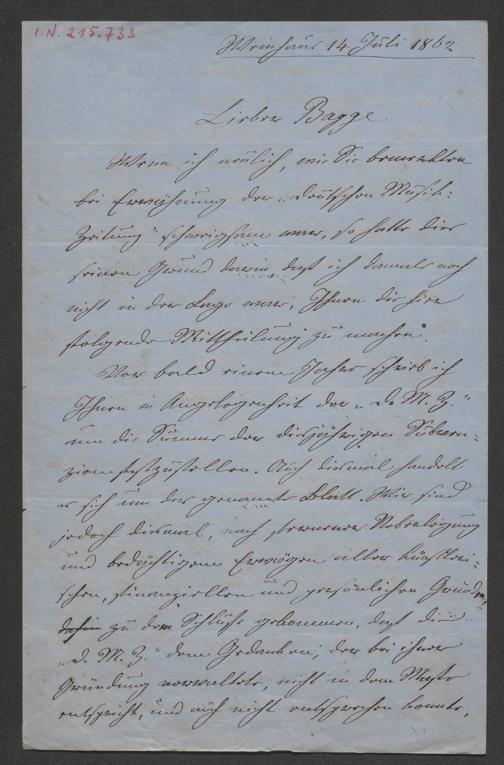 I.N. 215.733
Weinhaus 14 Juli 1862
Lieber Bagge
Wenn ich neulich, wie Sie bemerkten
bei Erwähnung der „deutschen Musik-
Zeitung" schweigsam war, so hatte dies
seinen Grund darin daß ich damals noch
nicht in der Lage war, Ihnen die hier
folgende Mittheilung zu machen.
Vor bald einem Jahre schrieb ich
Ihnen in Angelegenheit der „D. M. Z."
um die Summe der diesjährigen Subven-
zion festzustellen. Auch diesmal handelt
es sich um das genannte Blatt. Wir sind
jedoch diesmal, nach Überlegung
und bedächtigem Erwägen aller künstleri-
schen, finanziellen und persönlichen Gründe,
zu dem Schluße gekommen, daß die
„D. M. Z." dem Gedanken, der bei ihrer
Gründung vorwaltete, nicht in dem Maße
entspricht, und auch nicht entsprechen konnte,